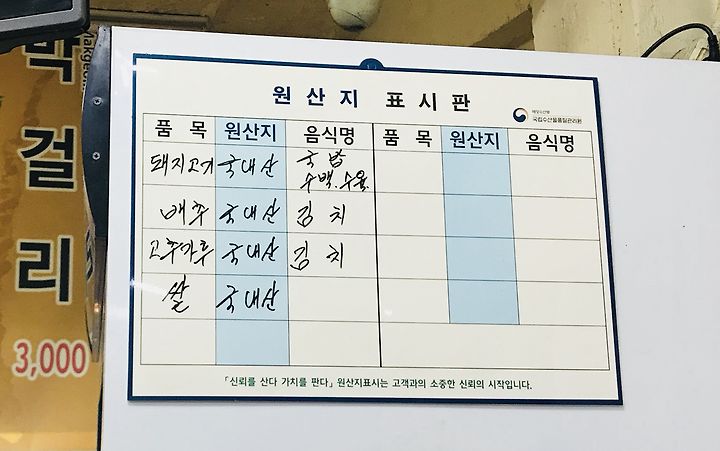 막걸리
Makgeolli
3,000
원산지 표시판
해양수산부
국립수산물품질관리원
품 목 원산지 음식명 품 목 원산지 음식명
돼지고기 국내산 국밥
수백.수육
배추 국내산 김치
고추가루 국내산 김치
쌀 국내산
「신뢰를 산다 가치를 판다」 원산지표시는 고객과의 소중한 신뢰의 시작입니다.